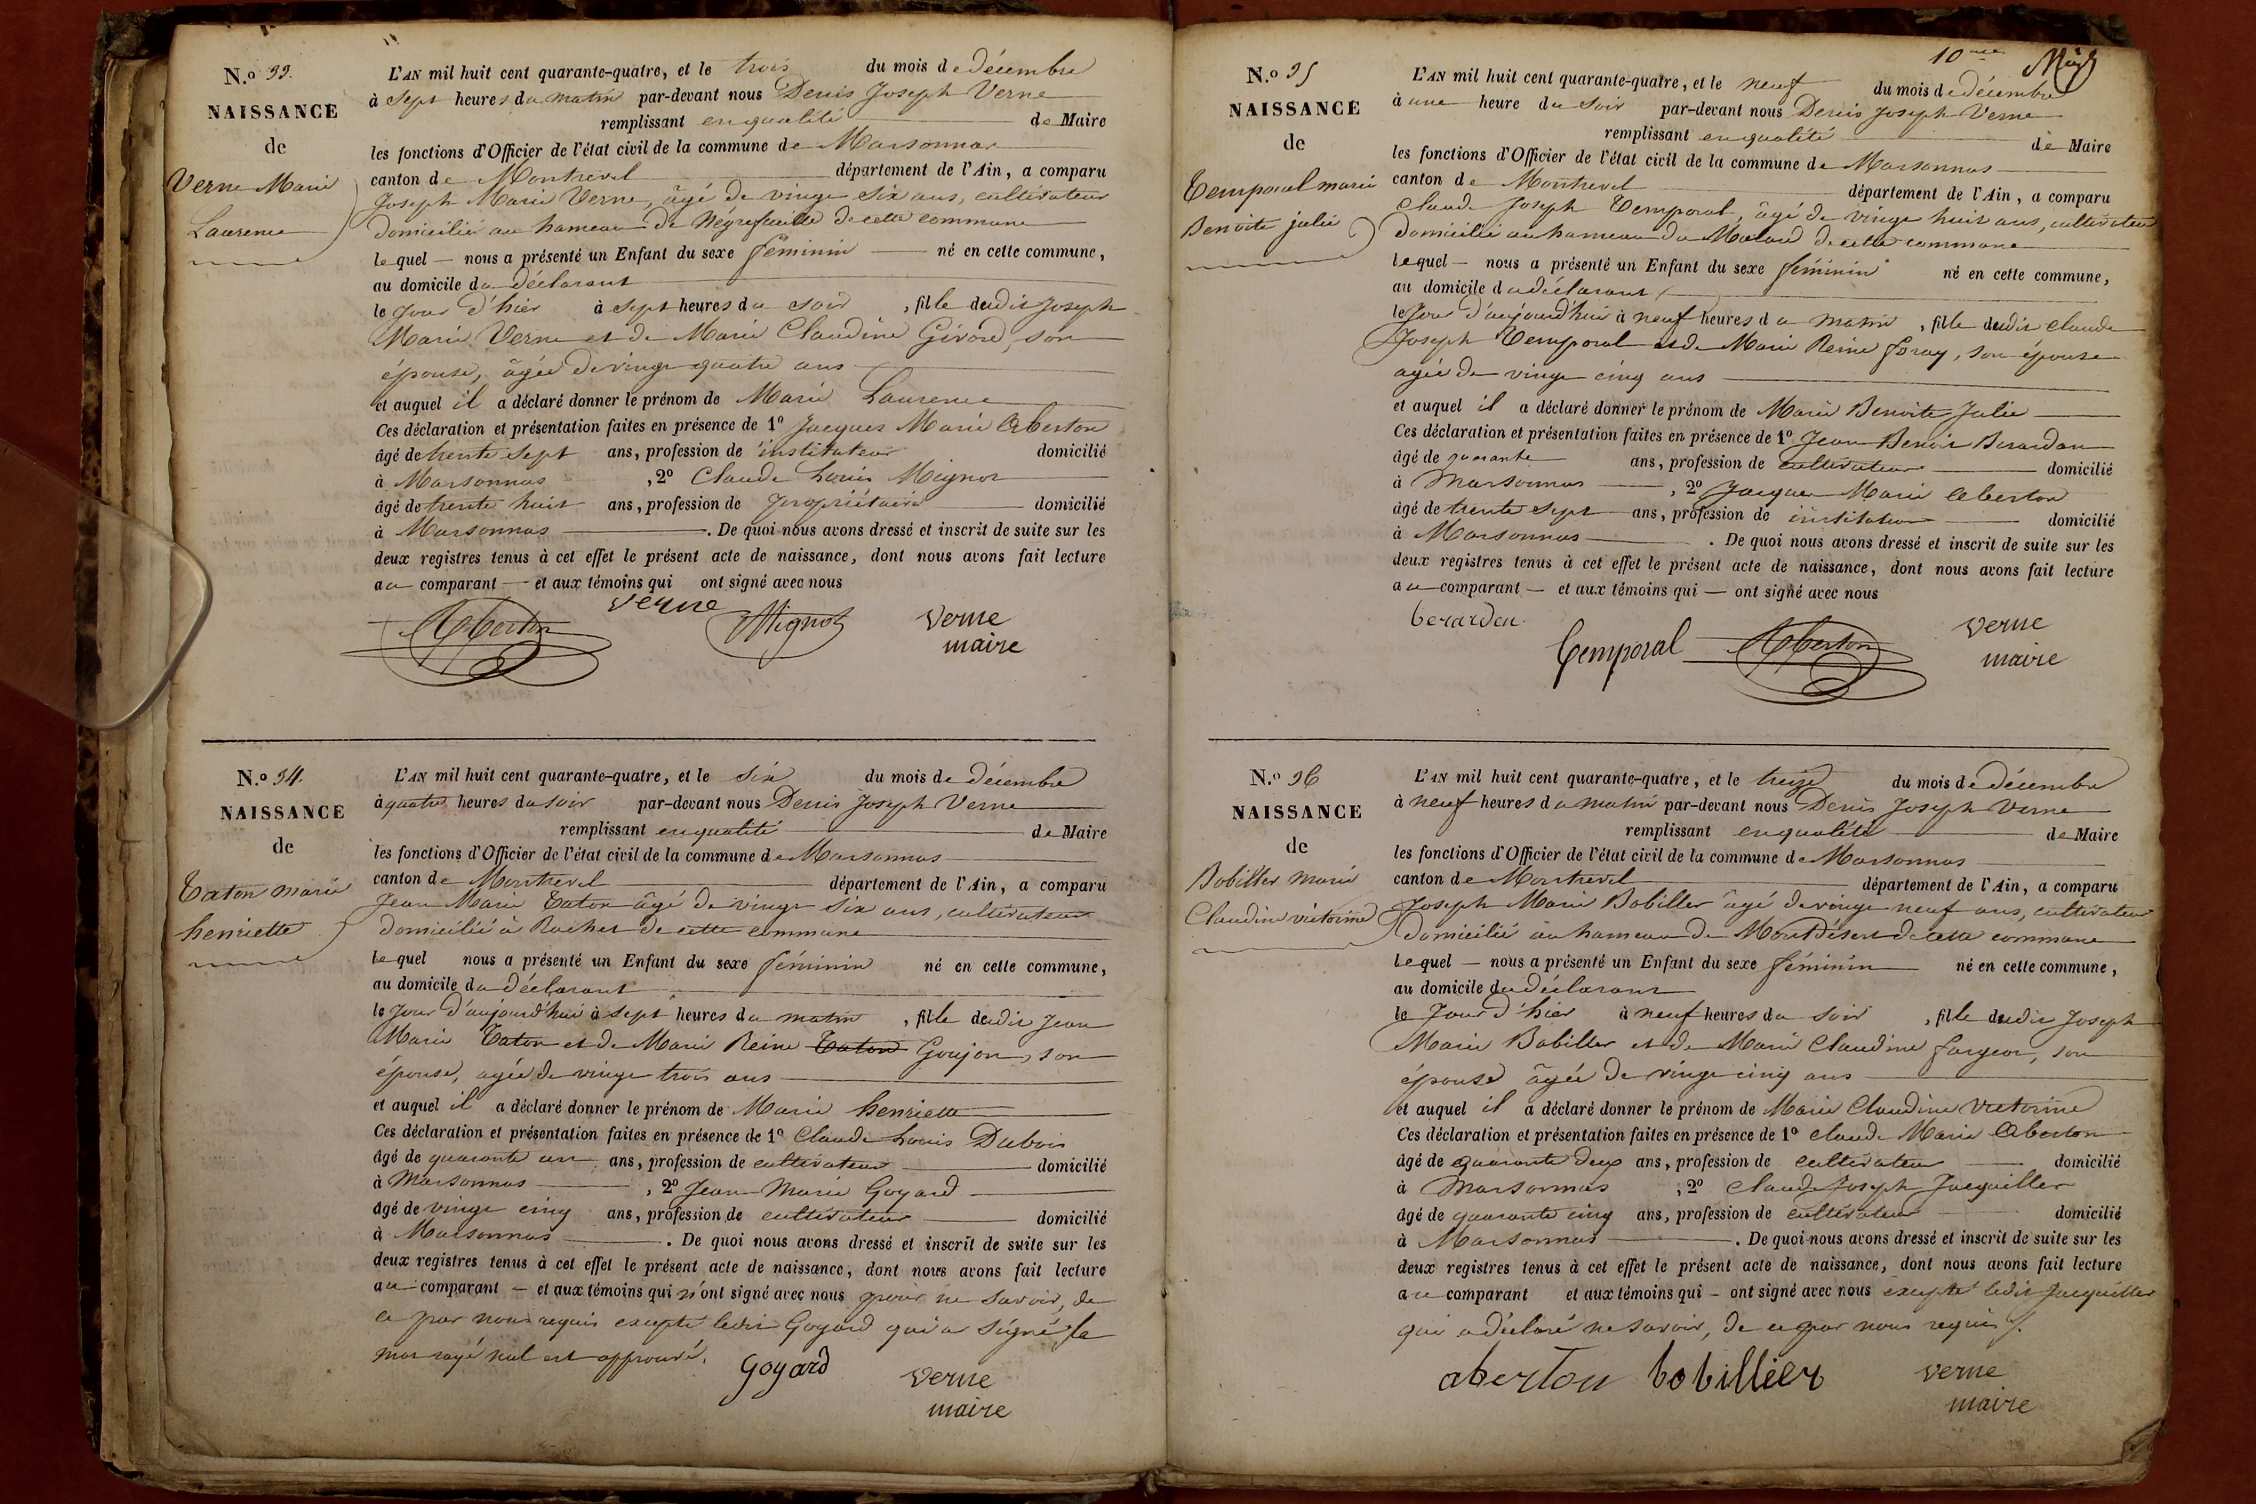 N.º 33.
NAISSANCE
de
Verne Marie
Laurence
L'AN mil huit cent quarante-quatre, et le trois du mois de décembre
à sept heures du matin par-devant nous Denis Joseph Verne
remplissant en qualité de Maire
les fonctions d'Officier de l'état civil de la commune de Marsonnas
canton de Montrevel département de l'Ain, a comparu
Joseph Marie Verne, âgé de vingt six ans, cultivateur
domicilié au hameau de de cette commune
lequel — nous a présenté un Enfant du sexe féminin né en cette commune,
au domicile du déclarant
le jour d'hier à sept heures du soir, fille dudit Joseph
Marie Verne et de Marie Claudine Givord, son
épouse, âgée de vingt quatre ans
et auquel il a déclaré donner le prénom de Marie Laurence
Ces déclaration et présentation faites en présence de 1º Jacques Marie Aberton
âgé de trente sept ans, profession de instituteur domicilié
à Marsonnas, 2º Claude Louis Mignot
âgé de trente huit ans, profession de propriétaire domicilié
à Marsonnas. De quoi nous avons dressé et inscrit de suite sur les
deux registres tenus à cet effet le présent acte de naissance, dont nous avons fait lecture
au comparant — et aux témoins qui ont signé avec nous
Aberton verne Mignot verne
maire
N.º 34.
NAISSANCE
de
Taton marie
henriette
L'AN mil huit cent quarante-quatre, et le six du mois de décembre
à quatre heures du soir par-devant nous Denis Joseph Verne
remplissant en qualité de Maire
les fonctions d'Officier de l'état civil de la commune de Marsonnas
canton de Montrevel département de l'Ain, a comparu
Jean Marie Taton âgé de vingt six ans, cultivateur
domicilié à Rochet de cette commune
lequel nous a présenté un Enfant du sexe féminin né en cette commune,
au domicile du déclarant
le jour d'aujourd'hui à sept heures du matin, fille dudit Jean
Marie Taton et de Marie Reine Taton Goujon, son
épouse, agée de vingt trois ans
et auquel il a déclaré donner le prénom de Marie henriette
Ces déclaration et présentation faites en présence de 1º Claude Louis Dubois
âgé de quarante un ans, profession de cultivateur domicilié
à Marsonnas, 2º Jean Marie Goyard
âgé de vingt cinq ans, profession de cultivateur domicilié
à Marsonnas. De quoi nous avons dressé et inscrit de suite sur les
deux registres tenus à cet effet le présent acte de naissance, dont nous avons fait lecture
au comparant — et aux témoins qui n'ont signé avec nous pour ne savoir, de
ce par nous requis excepté ledit Goyard qui a signé, le
mot rayé nul est approuvé.
Goyard verne
maire
10me
N.º 35
NAISSANCE
de
Temporal marie
Benoite julie
L'AN mil huit cent quarante-quatre, et le neuf du mois de décembre
à une heure du soir par-devant nous Denis Joseph Verne
remplissant en qualité de Maire
les fonctions d'Officier de l'état civil de la commune de Marsonnas
canton de Montrevel département de l'Ain, a comparu
Claude Joseph Temporal, âgé de vingt huit ans, cultivateur
domicilié au hameau du de cette commune
lequel — nous a présenté un Enfant du sexe féminin né en cette commune,
au domicile du déclarant
le jour d'aujourd'hui à neuf heures du matin, fille dudit Claude
Joseph Temporal et de Marie Reine foray, son épouse
agée de vingt cinq ans
et auquel il a déclaré donner le prénom de Marie Benoite Julie
Ces déclaration et présentation faites en présence de 1º Jean Benoit Berardan
âgé de quarante ans, profession de cultivateur domicilié
à Marsonnas, 2º Jacques Marie Aberton
âgé de trente sept ans, profession de instituteur domicilié
à Marsonnas. De quoi nous avons dressé et inscrit de suite sur les
deux registres tenus à cet effet le présent acte de naissance, dont nous avons fait lecture
au comparant — et aux témoins qui — ont signé avec nous
berardan Temporal Aberton verne
maire
N.º 36
NAISSANCE
de
Bobillier marie
Claudine victorine
L'AN mil huit cent quarante-quatre, et le treize du mois de décembre
à neuf heures du matin par-devant nous Denis Joseph Verne
remplissant en qualité de Maire
les fonctions d'Officier de l'état civil de la commune de Marsonnas
canton de Montrevel département de l'Ain, a comparu
Joseph Marie Bobillier âgé de vingt neuf ans, cultivateur
domicilié au hameau de Montdésert de cette commune
lequel — nous a présenté un Enfant du sexe féminin né en cette commune,
au domicile du déclarant
le Jour d'hier à neuf heures du soir, fille dudit Joseph
Marie Bobillier et de Marie Claudine fargeot, son
épouse âgée de vingt cinq ans
et auquel il a déclaré donner le prénom de Marie Claudine victorine
Ces déclaration et présentation faites en présence de 1º Claude Marie Aberton
âgé de quarante deux ans, profession de cultivateur domicilié
à Marsonnas, 2º Claude Joseph Jacquiller
âgé de quarante cinq ans, profession de cultivateur domicilié
à Marsonnas. De quoi nous avons dressé et inscrit de suite sur les
deux registres tenus à cet effet le présent acte de naissance, dont nous avons fait lecture
au comparant et aux témoins qui — ont signé avec nous excepté ledit Jacquiller
qui a déclaré ne savoir, de ce par nous requis.
aberton bobillier verne
maire